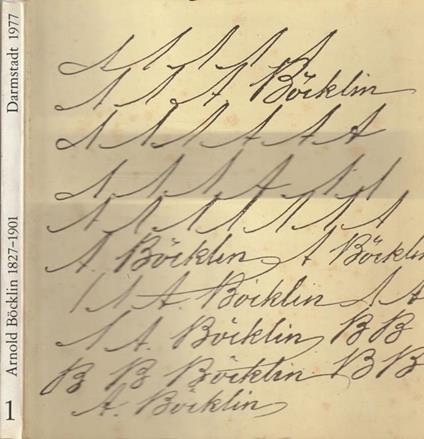 Darmstadt 1977
Arnold Böcklin 1827–1901
1
A A A A A
A A A Böcklin
A A A A A A A
A A A A A A
A A A A A A A
A. Böcklin A Böcklin
A A A. Böcklin A A
A A. Böcklin B B
B B Böcklin B B
A. Böcklin